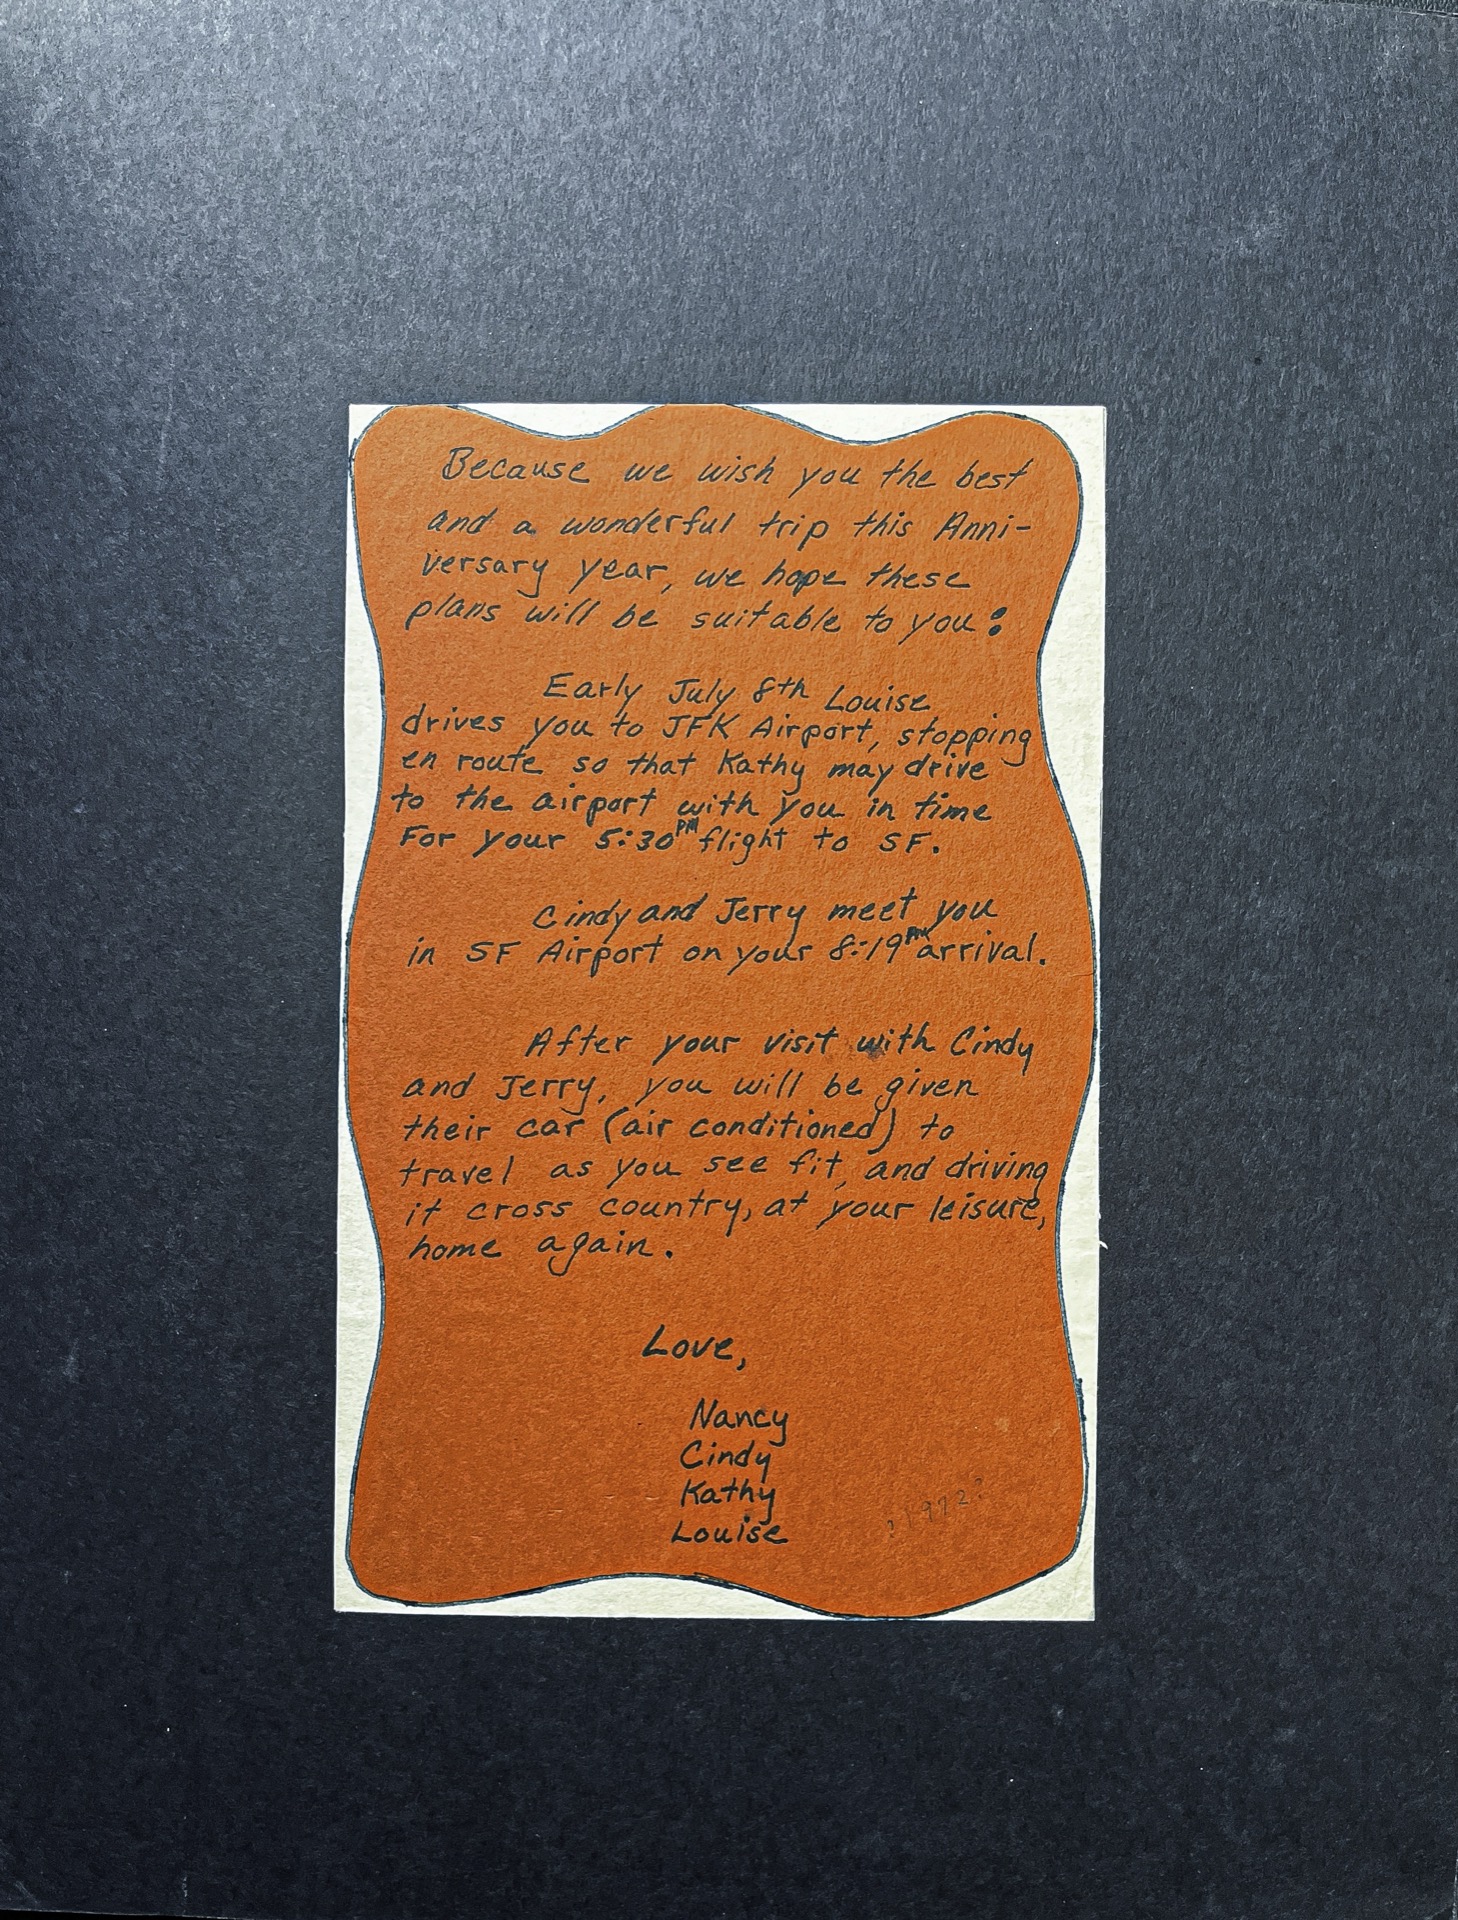 Because we wish you the best
and a wonderful trip this Anni-
versary year, we hope these
plans will be suitable to you:
Early July 8th Louise
drives you to JFK Airport, stopping
en route so that Kathy may drive
to the airport with you in time
For your 5:30 PM flight to SF.
Cindy and Jerry meet you
in SF Airport on your 8:19 PM arrival.
After your visit with Cindy
and Jerry, you will be given
their car (air conditioned) to
travel as you see fit, and driving
it cross country, at your leisure,
home again.
Love,
Nancy
Cindy
Kathy
Louise
?1972?